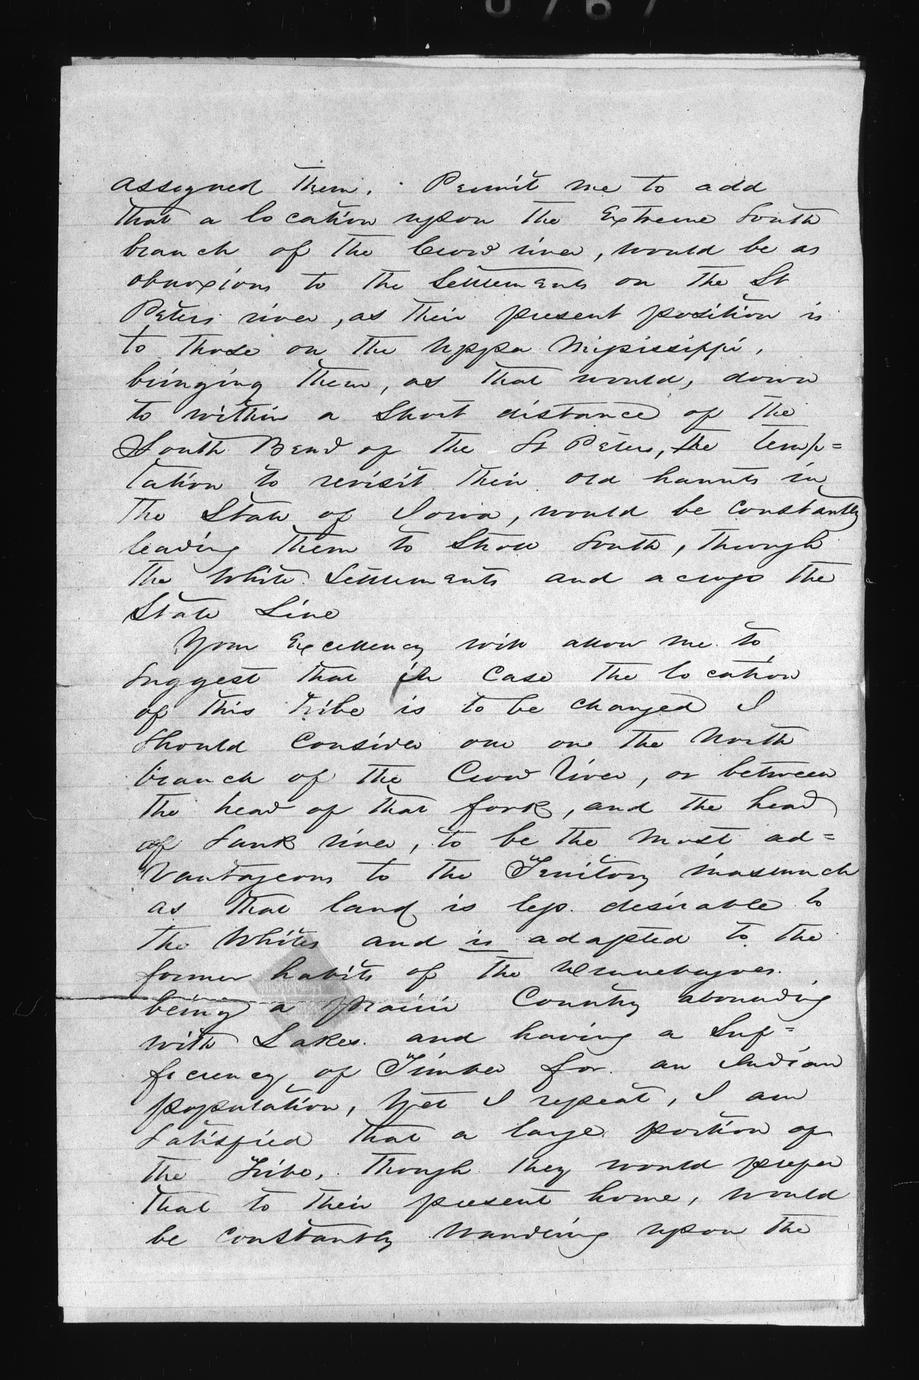 0767
assigned them. Permit me to add
that a location upon the Extreme South
branch of the Crow river, would be as
obnoxious to the Settlements on the St
Peters river, as their present position is
to those on the Upper Mississippi,
bringing them, as that would, down
to within a Short distance of the
South Bend of the St Peters, the temp=
tation to revisit their old haunts in
the State of Iowa, would be constantly
leading them to Stroll South, through
the White Settlements and across the
State Line
Your Excellency will allow me to
Suggest that in Case the location
of this tribe is to be changed I
Should Consider one on the North
branch of the Crow River, or between
the head of that fork, and the head
of Sauk river, to be the most ad=
vantageous to the Territory inasmuch
as that land is less desirable to
the Whites and is adapted to the
former habits of the Winnebagoes.
being a prairie Country abounding
with Lakes. and having a Suf=
ficiency of Timber for an Indian
population, Yet I repeat, I am
Satisfied that a large portion of
the Tribe, though they would prefer
that to their present home, would
be constantly wandering upon the